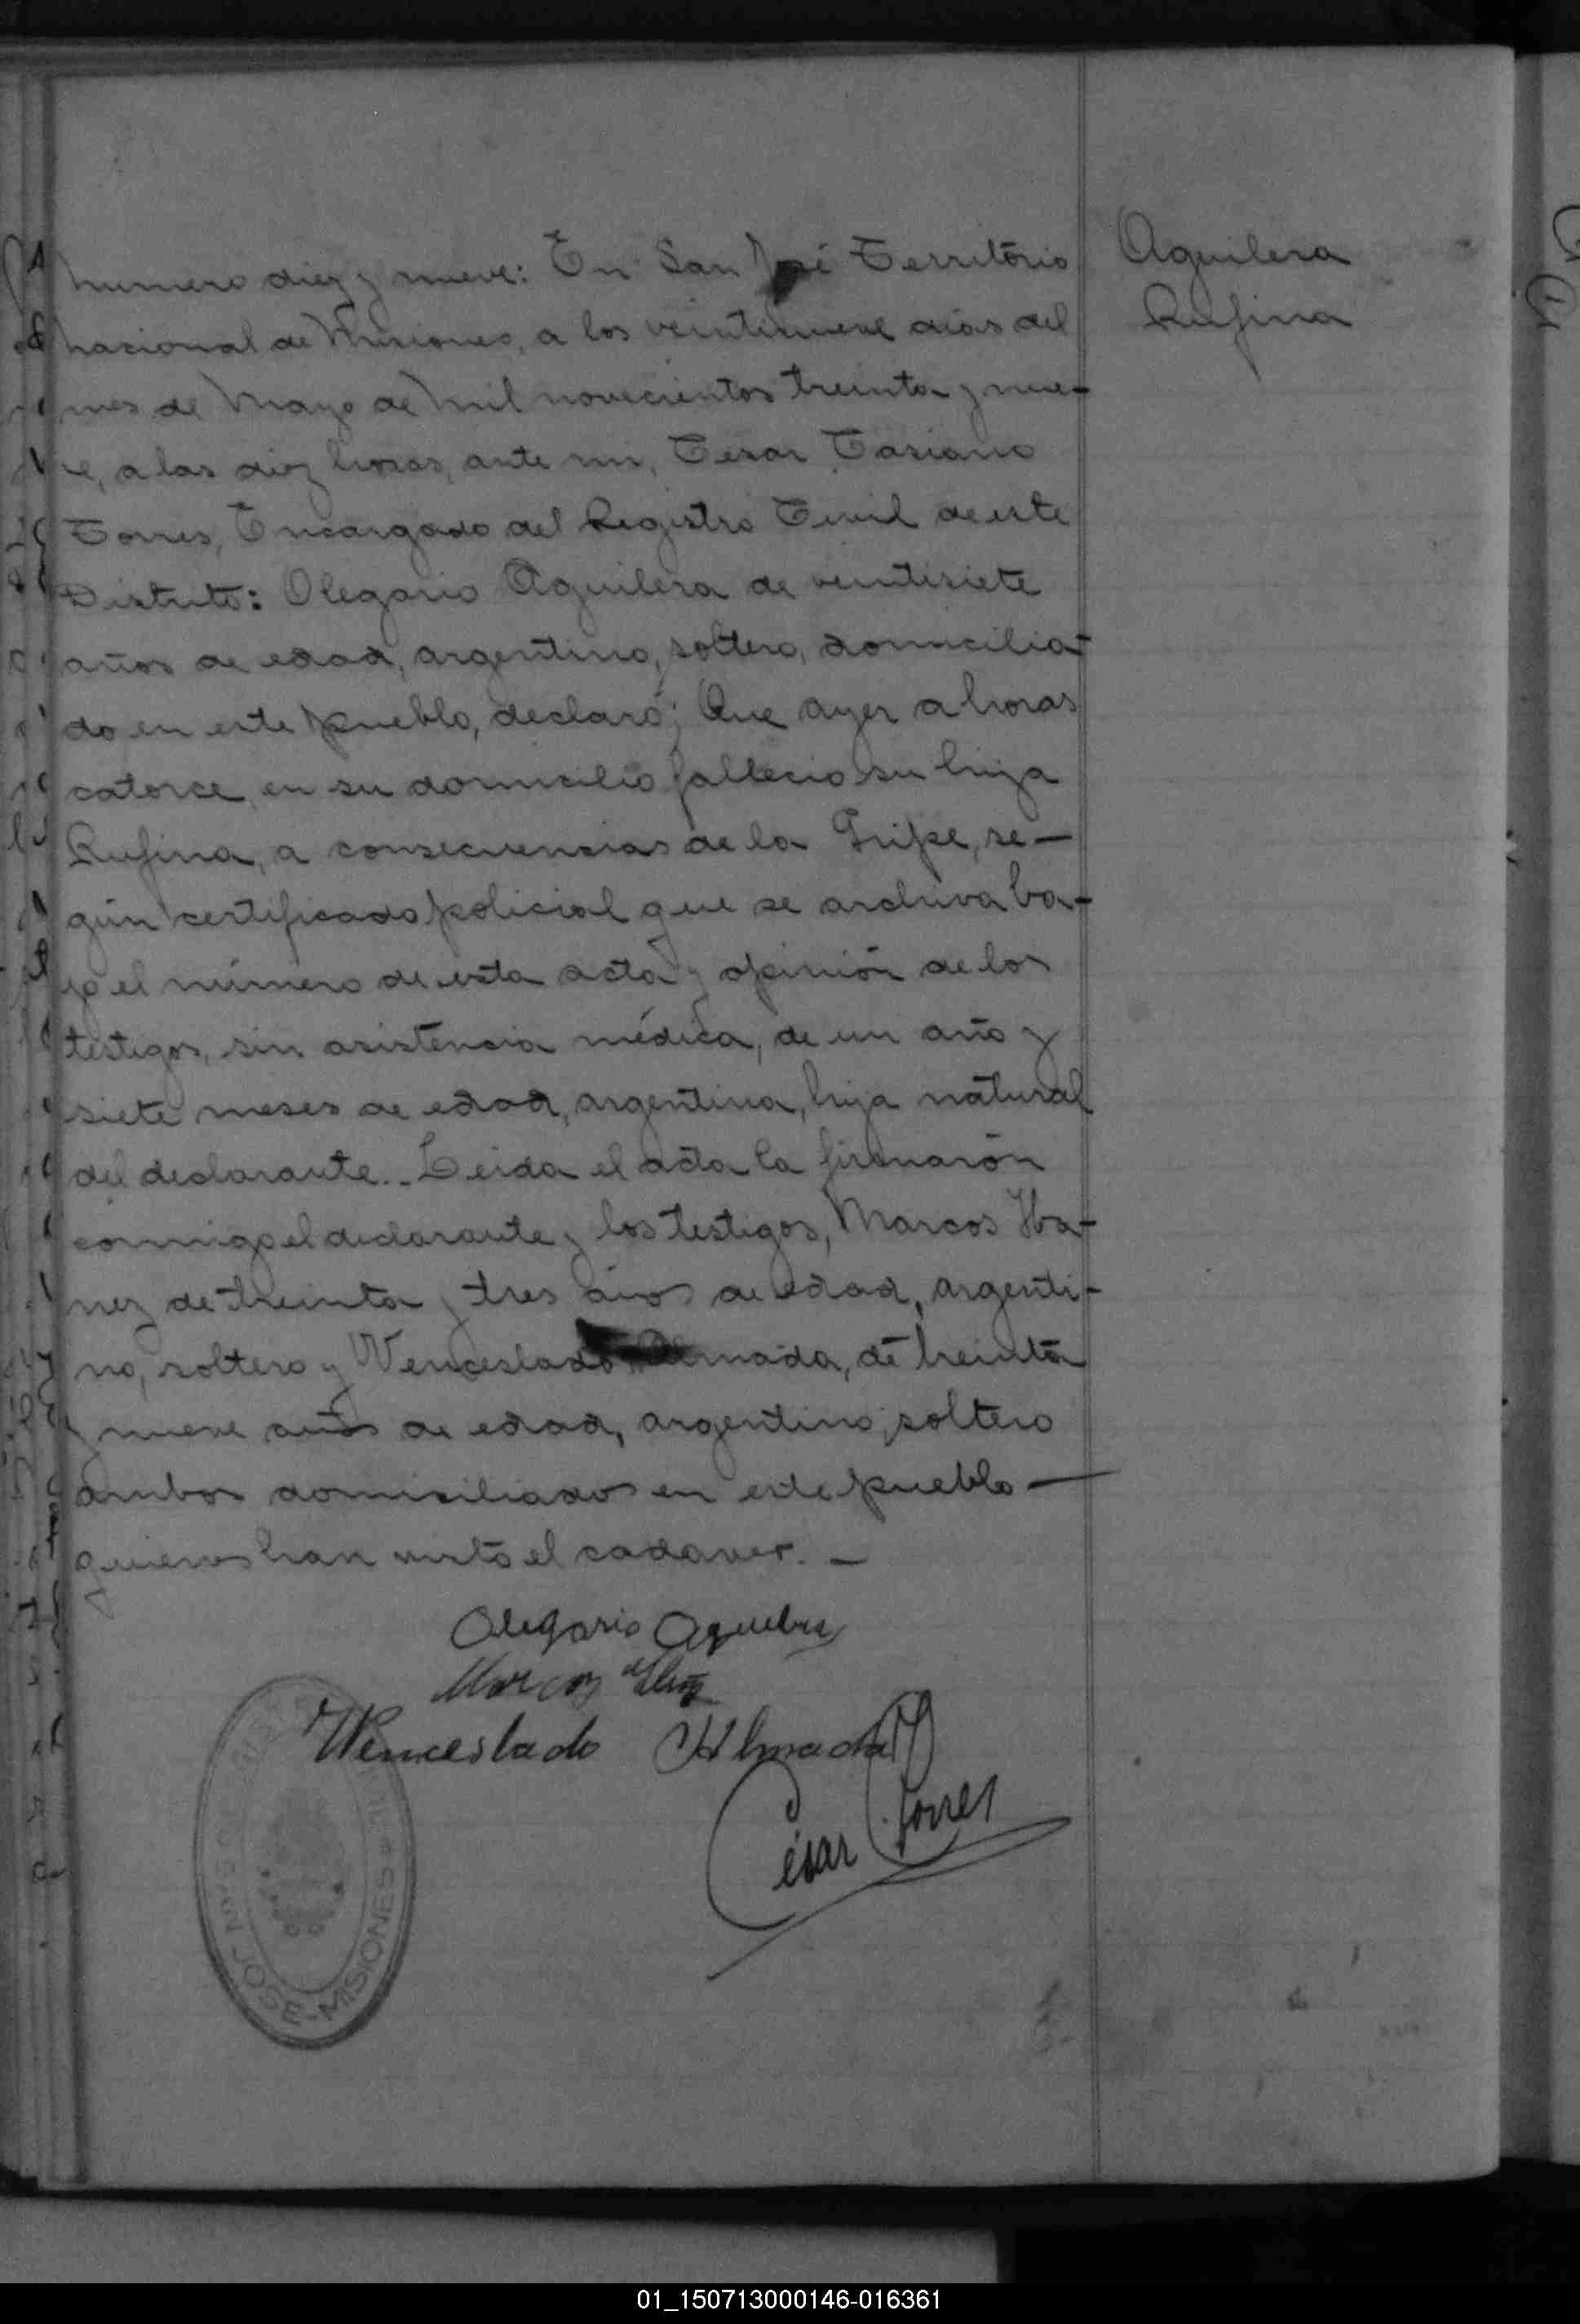 Aguilera
Rufina
Numero diez y nueve: En San José Territorio
nacional de Misiones, a los veintinueve dias del
mes de Mayo de Mil novecientos treinta y nue-
ve, a las diez horas, ante mi, Cesar Casiano
Torres, Encargado del Registro Civil de este
Distrito: Olegario Aguilera de veintisiete
años de edad, argentino, soltero, domicilia-
do en este pueblo, declaró; Que ayer a horas
catorce, en su domicilio fallecio su hija
Rufina, a consecuencias de la Gripe, se-
gún certificado policial que se archiva ba-
jo el número de esta acta y opinión de los
testigos, sin asistencia médica, de un año y
siete meses de edad, argentina, hija natural
del declarante.. Leida el acta la firmarón
conmigo el declarante y los testigos, Marcos Iba-
nez de treinta y tres años de edad, argenti-
no, soltero y Wenceslado Almada, de treinta
y nueve años de edad, argentino, soltero
ambos domiciliados en este pueblo —
quienes han visto el cadaver. —
Olegario Aguilera
Marcos Ibañez
Wenceslado Almada
César C Torres
SAN JOSE-MISIONES
01_150713000146-016361